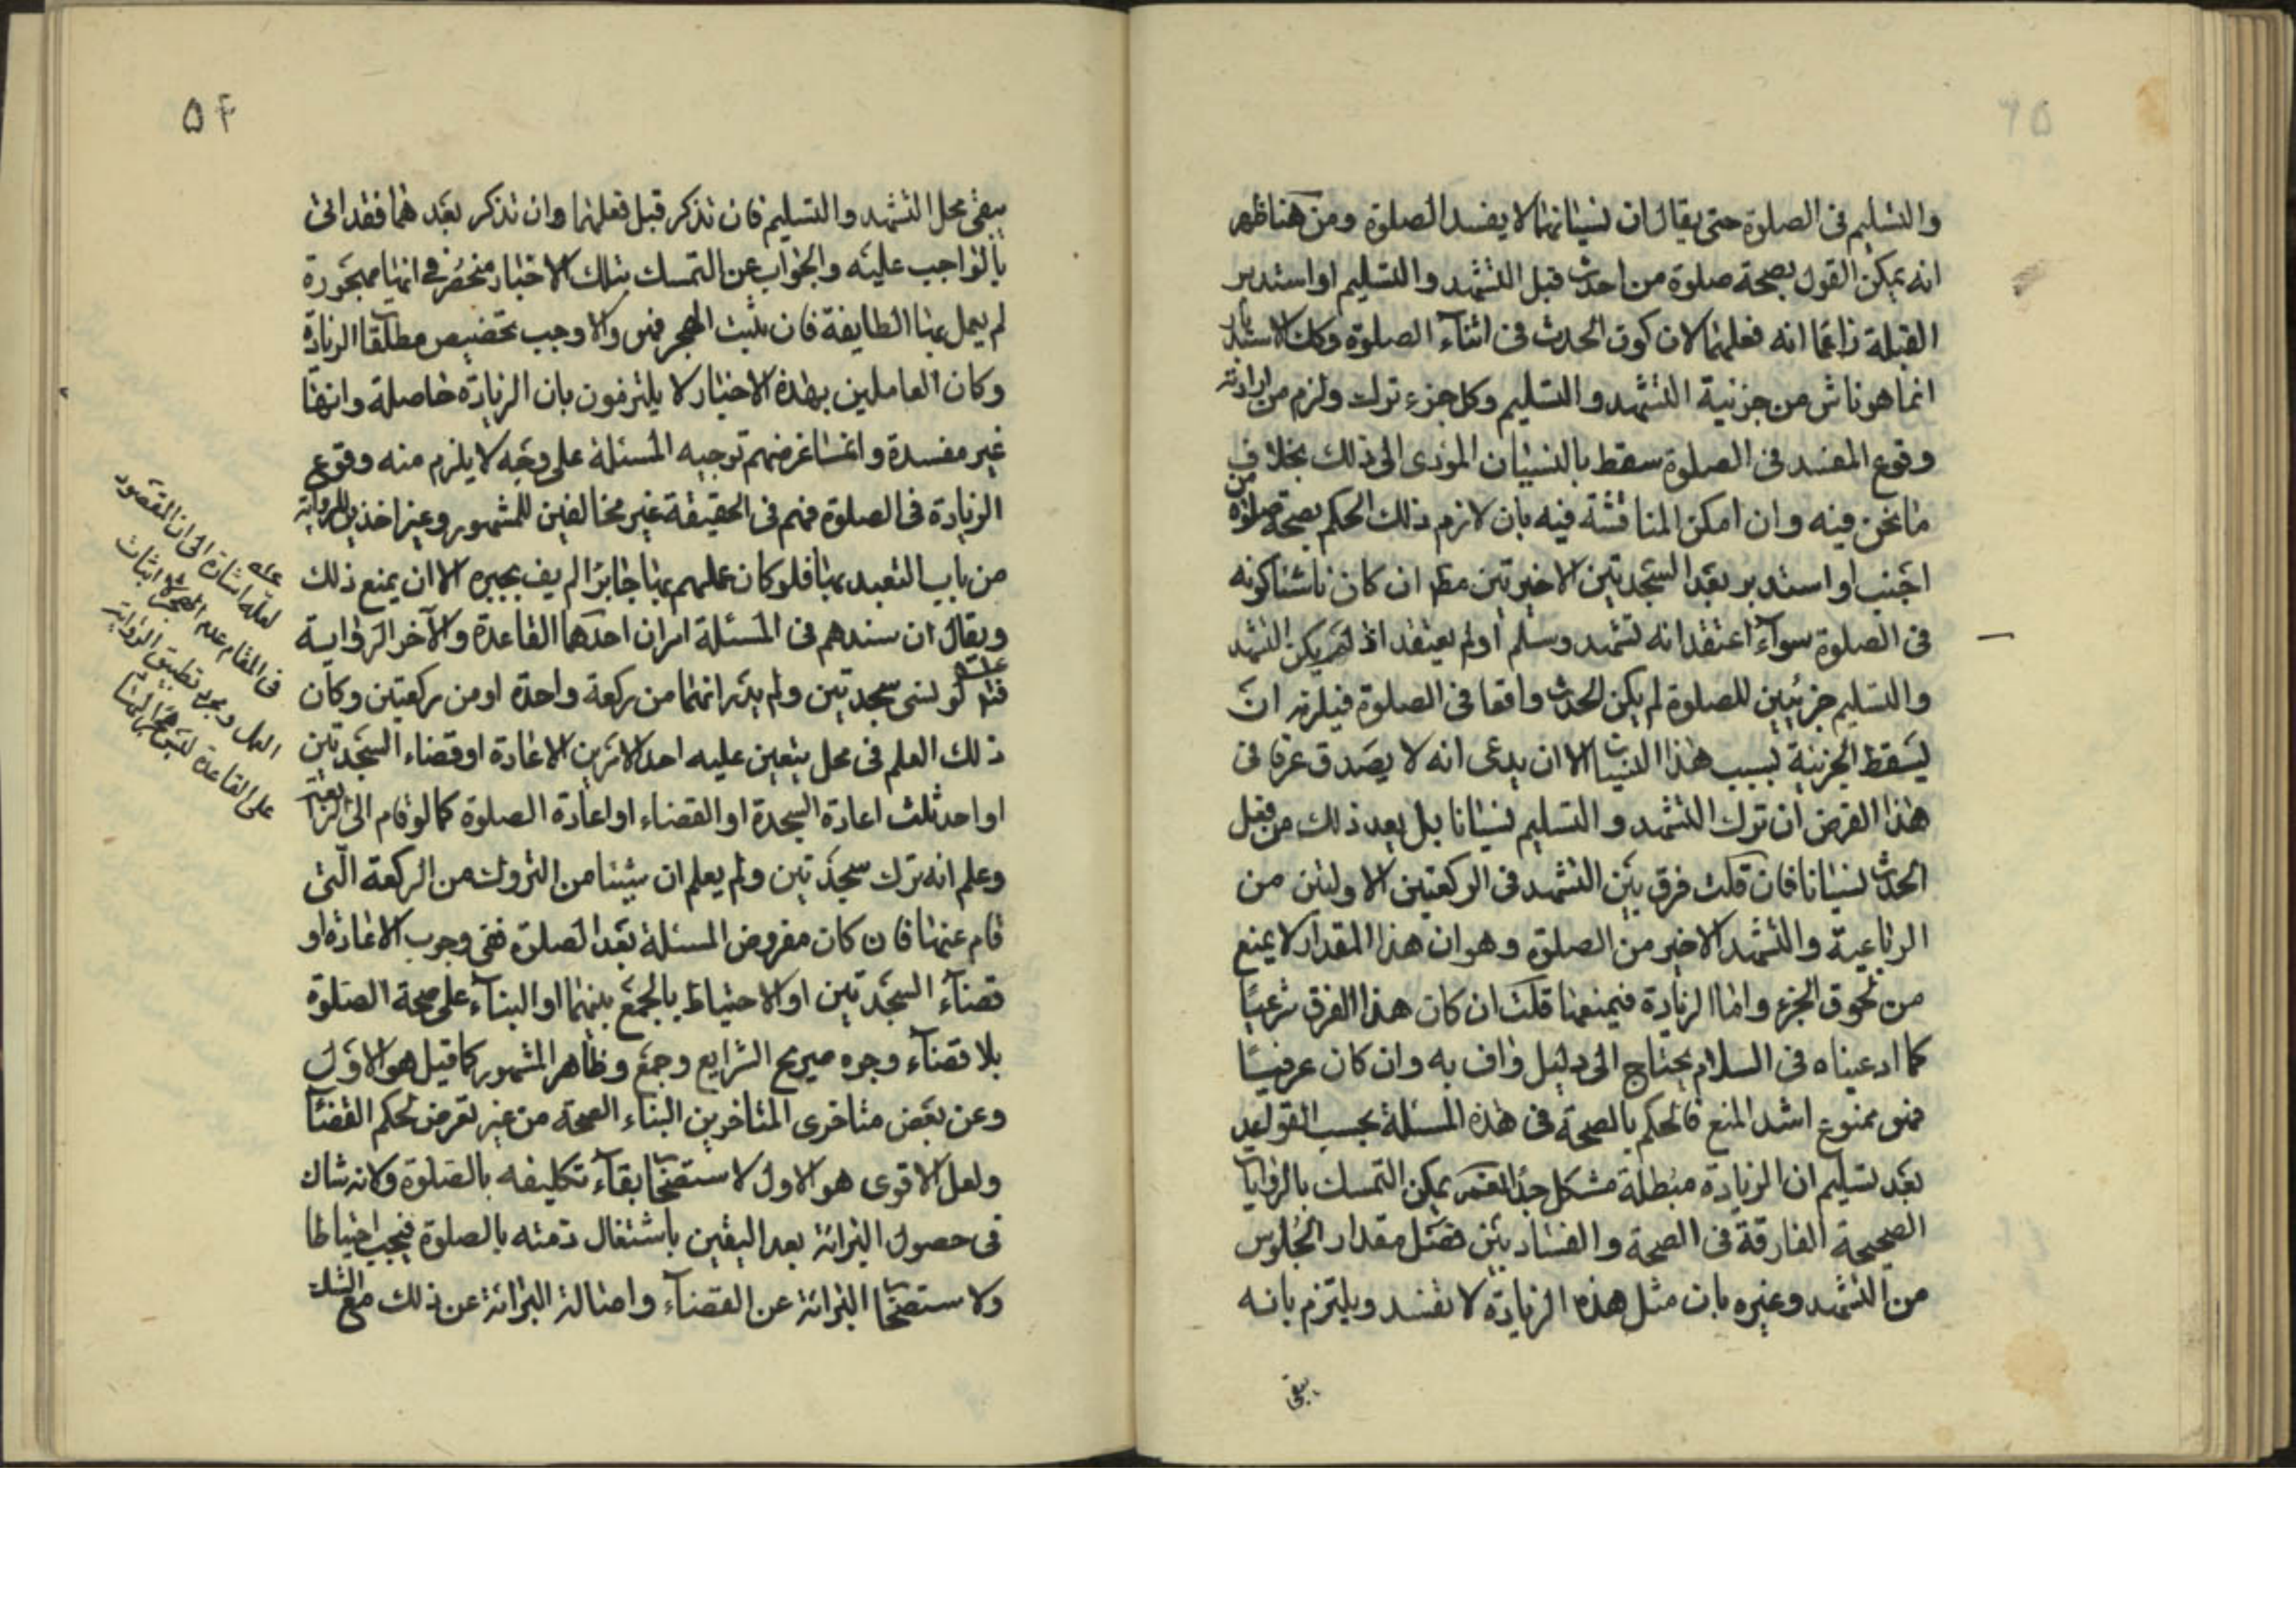 والتسليم فى الصلوة حتى يقال ان نسيانهما لا يفسد الصلوة ومن هنا ظهر
انه يمكن القول بصحة صلوة من احدث قبل التشهد والتسليم او استدبر
القبلة زاعما انه فعلهما لان كون الحدث فى اثناء الصلوة وكك الاستدبار
انما هو ناش من جزئية التشهد والتسليم وكل جزء ترك ولزم من
وقوع المفسد فى الصلوة سقط بالنسيان المؤدى الى ذلك بخلاف
ما نحن فيه وان امكن المناقشة فيه بان لازم ذلك الحكم بصحة صلوة من
اجنب او استدبر بعد السجدتين الاخيرتين مط ان كان ناشئا كونه
فى الصلوة سواء اعتقد انه تشهد وسلم او لم يعتقد اذ لو لم يكن التشهد
والتسليم جزئين للصلوة لم يكن الحدث واقعا فى الصلوة فيلزم ان
يسقط الجزئية بسبب هذا النسيان الا ان يدعى انه لا يصدق عرفا فى
هذا الفرض ان ترك التشهد والتسليم نسيانا بل يعد ذلك من فعل
الحدث نسيانا فان قلت فرق بين التشهد فى الركعتين الاوليين من
الرباعية والتشهد الاخير من الصلوة وهو ان هذا المقدار لا يمنع
من لحوق الجزء واما الزيادة فيمنعها قلت ان كان هذا الفرق شرعيا
كما ادعيناه فى السلام يحتاج الى دليل واف به وان كان عرفيا
فهو ممنوع اشد المنع فالحكم بالصحة فى هذه المسئلة بحسب القواعد
بعد تسليم ان الزيادة مبطلة مشكل جدا نعم يمكن التمسك بالروايات
الصحيحة الفارقة فى الصحة والفساد بين فصل مقدار الجلوس
من التشهد وغيره بان مثل هذه الزيادة لا تفسد ويلتزم بانه
يبقى
۵۴
يبقى محل التشهد والتسليم فان تذكر قبل فعلهما وان تذكر بعدهما فقد اتى
بالواجب عليه والجواب عن التمسك بتلك الاخبار منحصر فى انها مهجورة
لم يعمل بها الطايفة فان ثبت الهجر فهو والا وجب تخصيص مطلقات الزيادة
وكان العاملين بهذه الاخبار لا يلتزمون بان الزيادة حاصلة وانها
غير مفسدة وانما غرضهم توجيه المسئلة على وجه لا يلزم منه وقوع
الزيادة فى الصلوة فهم فى الحقيقة غير مخالفين للمشهور وغير اخذين بالرواية
من باب التعبد بها فلو كان عملهم بها جابرا لم يف بجبره الا ان يمنع ذلك
ويقال ان سندهم فى المسئلة امران احدهما القاعدة والآخر الرواية
فتم لو نسى سجدتين ولم يدر انهما من ركعة واحدة او من ركعتين وكان
ذلك العلم فى محل يتعين عليه احد الامرين الاعادة او قضاء السجدتين
او احد ثلث اعادة السجدة او القضاء او اعادة الصلوة كما لو قام الى الرابعة
وعلم انه ترك سجدتين ولم يعلم ان شيئا من التروك من الركعة التى
قام عنها فان كان مفروض المسئلة بعد الصلوة ففى وجوب الاعادة او
قضاء السجدتين او الاحتياط بالجمع بينهما او البناء على صحة الصلوة
بلا قضاء وجوه صريح الشرايع وجمع وظاهر المشهور كما قيل هو الاول
وعن بعض متاخرى المتاخرين البناء الصحة من غير تعرض لحكم القضاء
ولعل الاقوى هو الاول لاستصحاب بقاء تكليفه بالصلوة ولانه شاك
فى حصول البرائة بعد اليقين باشتغال ذمته بالصلوة فيجب احتياطا
ولا ستصحاب البرائة عن القضاء واصالة البرائة عن ذلك مع الشك
لعله اشارة الى ان المقصود
فى المقام عدم اثبات
العمل ومجرد تطبيق الرواية
على القاعدة